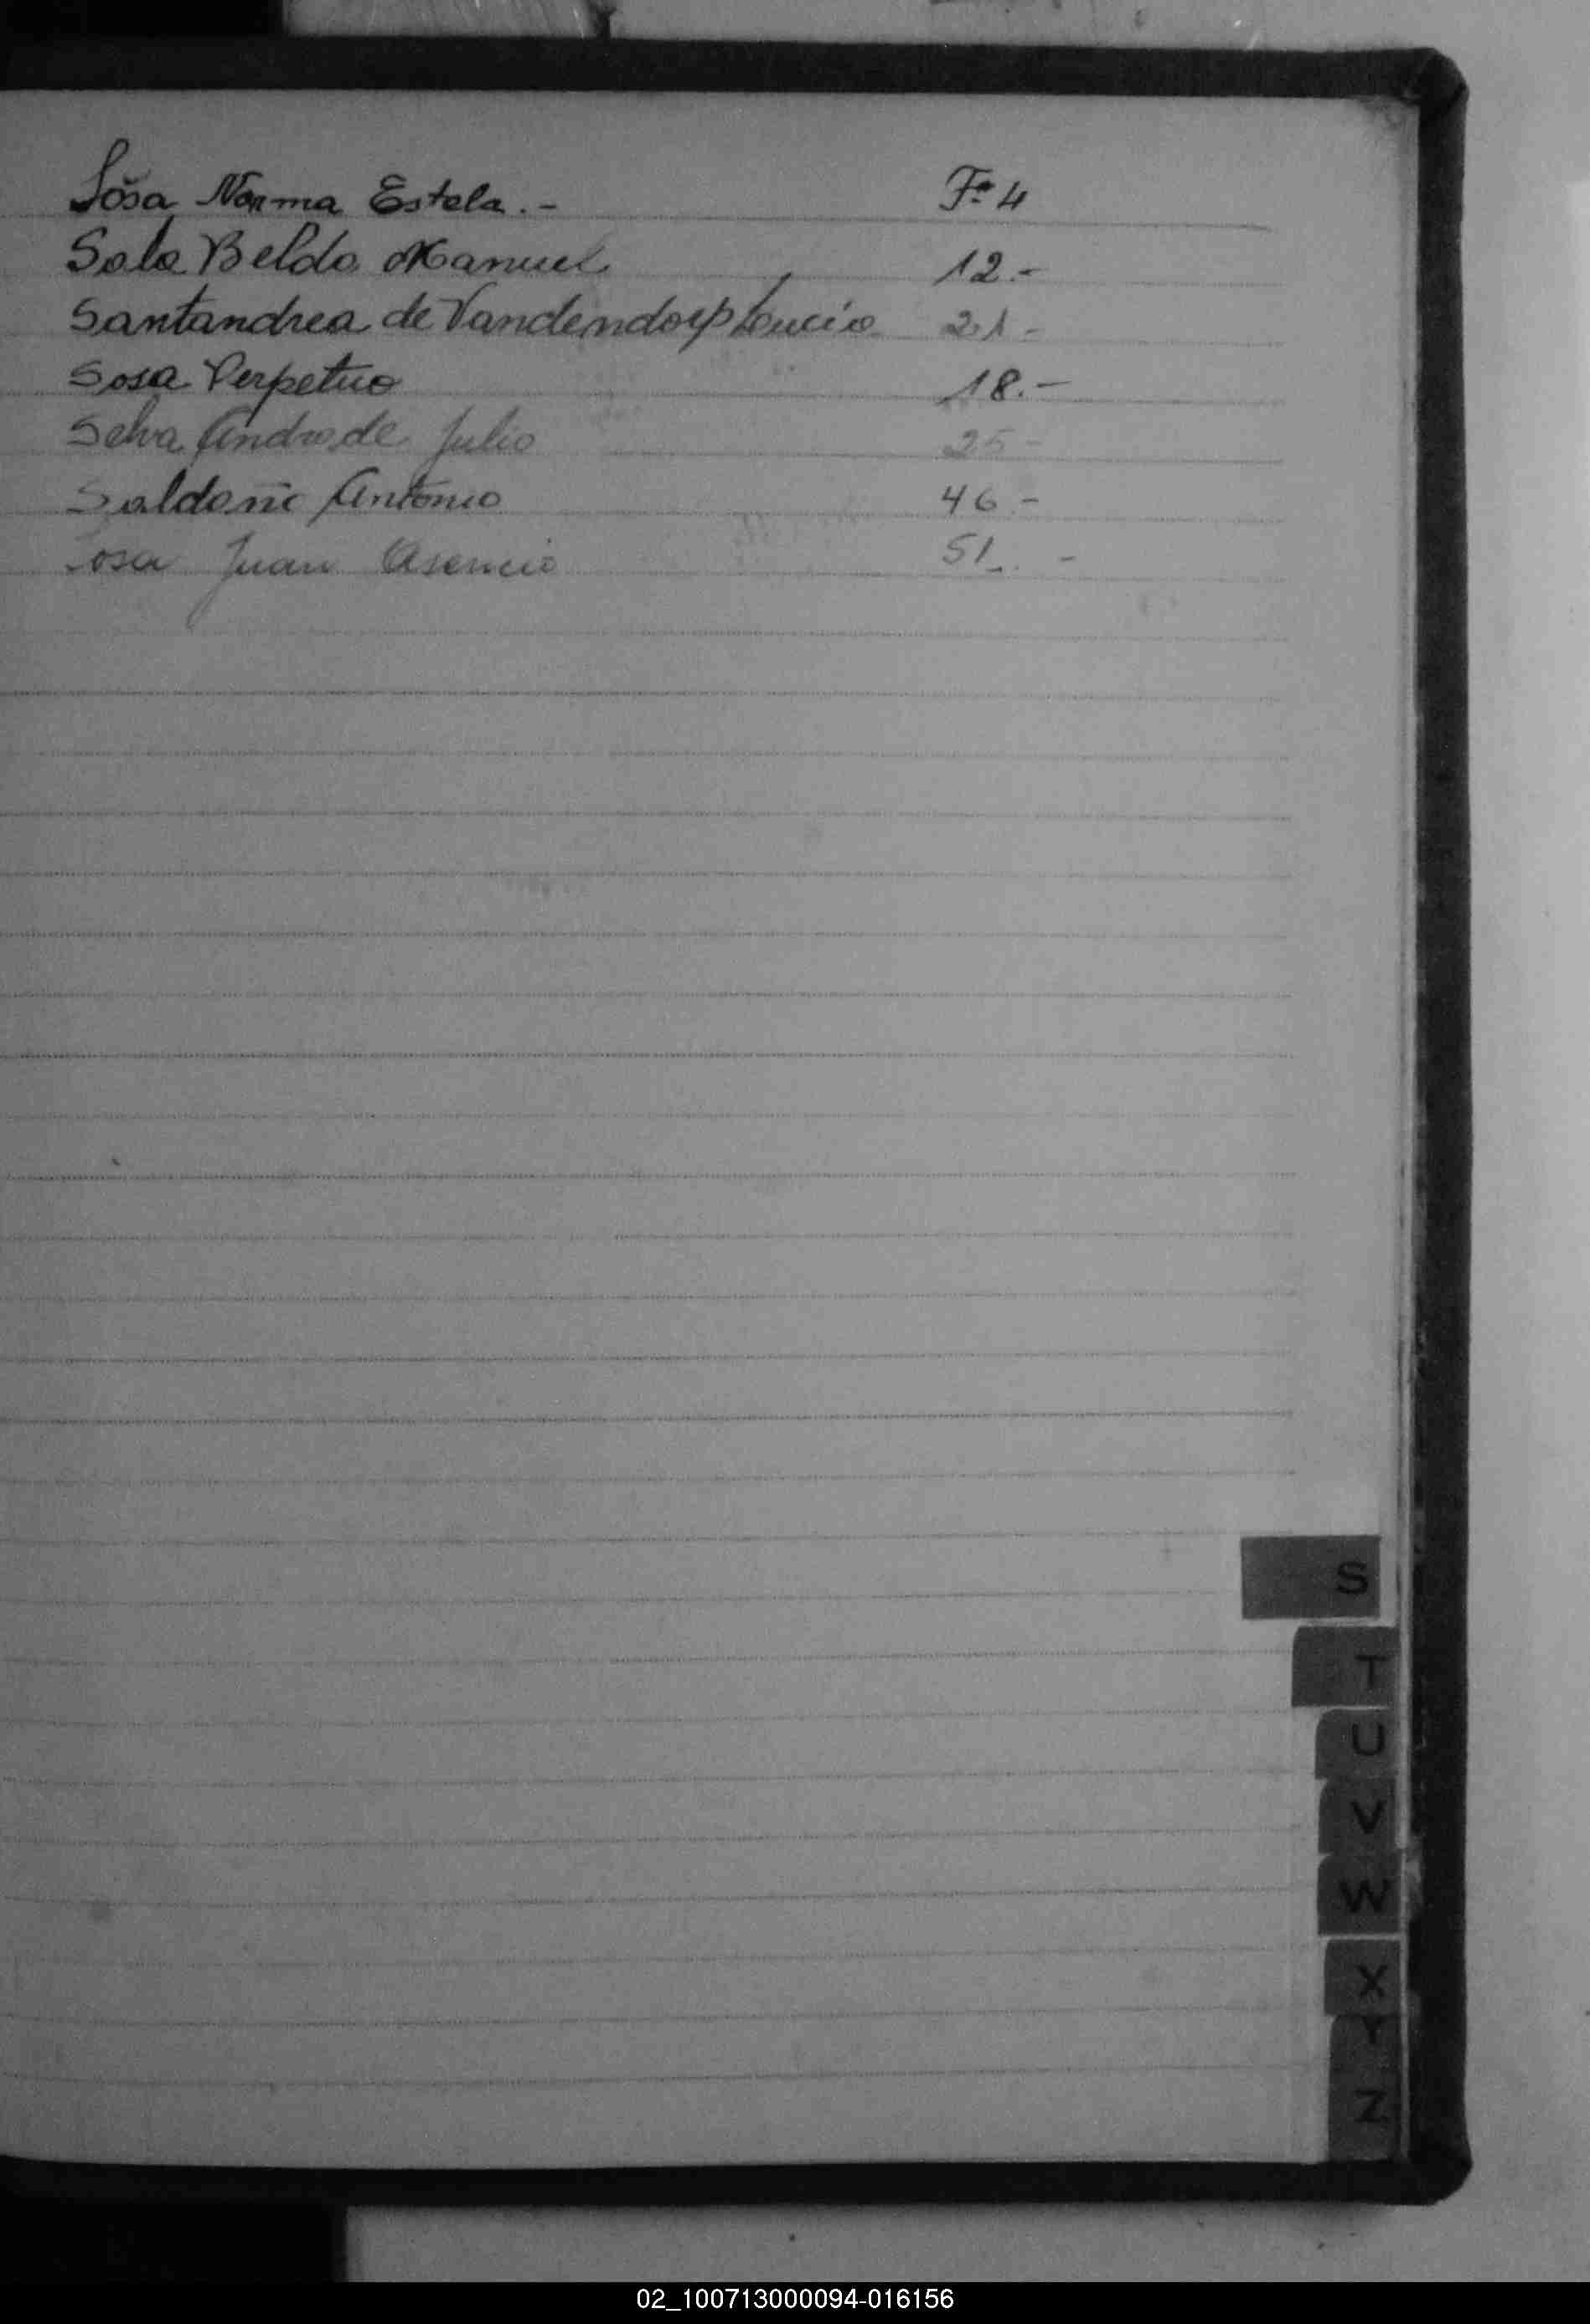 Sosa Norma Estela.- Fº 4
Sala Belda Manuel 12.-
Santandrea de Vandendorp Leucia 21-
Sosa Perpetuo 18.-
Selva Andrade Julio 25-
Saldaño Antonio 46.-
Sosa Juan Asencio 51. -
S
T
U
V
W
X
Y
Z
02_100713000094-016156